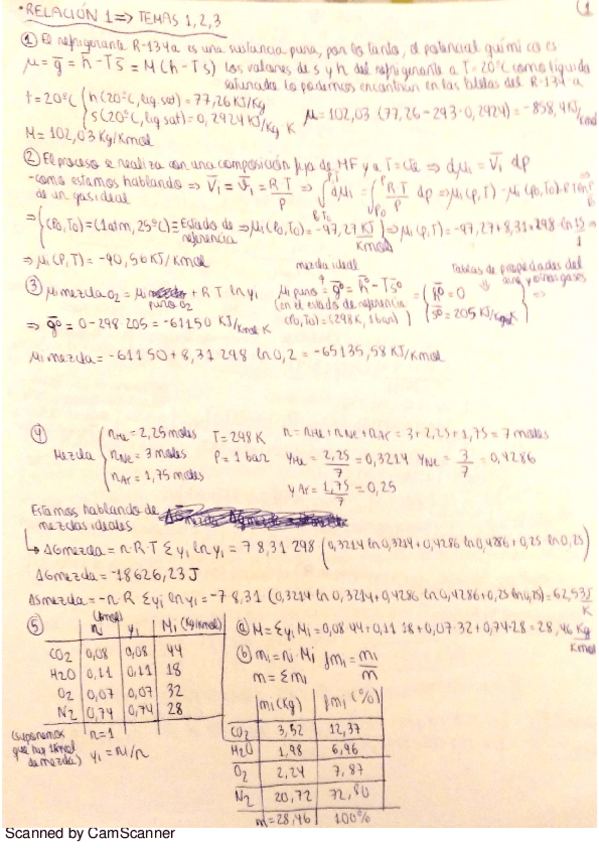 • RELACIÓN 1 => TEMAS 1, 2, 3
(1
① El refrigerante R-134a es una sustancia pura, por lo tanto, el potencial químico es
μ = g̅ = h̅ - Ts̅ = M(h - Ts) Los valores de s y h del refrigerante a T=20°C como líquido
saturado lo podemos encontrar en las tablas del R-134-a
t=20°C { h(20°C, liq sat) = 77,26 KJ/Kg
s(20°C, liq sat) = 0,2924 KJ/Kg K
μ = 102,03 (77,26 - 293·0,2924) = -858,4 KJ/Kmol
M = 102,03 Kg/Kmol
② El proceso se realiza con una composición fija de MF y a T=cte => dμi = V̅i dp
-como estamos hablando => V̅i = v̅i = R·T/P => ∫dμi = ∫ R·T/P dp => μi(p,T) - μi(po,To) = RT ln P/Po
de un gas ideal
=> { (Po,To) = (1atm, 25°C) ≡ Estado de referencia => μi(Po,To) = -47,27 KJ/Kmol => μi(P,T) = -47,27 + 8,31·298·ln 15/1 =>
=> μi(P,T) = -40,56 KJ/Kmol
③ μi mezcla O2 = μi puro O2 + RT ln yi
mezcla ideal
μi puro = g̅° = h̅° - Ts̅°
(en el estado de referencia
(Po,To) = (298K, 1bar) )
Tablas de propiedades del
aire y otros gases
{ h̅° = 0
s̅° = 205 KJ/Kmol K
=>
=> g̅° = 0 - 298·205 = -61150 KJ/Kmol K
μi mezcla = -61150 + 8,31·298 ln 0,2 = -65135,58 KJ/Kmol
④ Mezcla { nHe = 2,25 moles
nNe = 3 moles
nAr = 1,75 moles
T = 298 K
P = 1 bar
n = nHe + nNe + nAr = 3 + 2,25 + 1,75 = 7 moles
yHe = 2,25/7 = 0,3214 yNe = 3/7 = 0,4286
yAr = 1,75/7 = 0,25
Estamos hablando de
mezclas ideales
↳ ΔGmezcla = n·R·T Σ yi ln yi = 7·8,31·298 (0,3214 ln 0,3214 + 0,4286 ln 0,4286 + 0,25 ln 0,25)
ΔGmezcla = -18626,23 J
ΔSmezcla = -n·R Σyi ln yi = -7·8,31 (0,3214 ln 0,3214 + 0,4286 ln 0,4286 + 0,25 ln 0,25) = 62,53 J/K
⑤
(kmol)
ni yi Mi (Kg/Kmol)
CO2 0,08 0,08 44
H2O 0,11 0,11 18
O2 0,07 0,07 32
N2 0,74 0,74 28
n=1
yi = ni/n
(suponemos
que hay 1 kmol
de mezcla)
ⓐ M = Σyi Mi = 0,08·44 + 0,11·18 + 0,07·32 + 0,74·28 = 28,46 Kg/Kmol
ⓑ mi = ni·Mi fmi = mi/m
m = Σmi
mi (Kg) fmi (%)
CO2 3,52 12,37
H2O 1,98 6,96
O2 2,24 7,87
N2 20,72 72,80
m=28,46 100%
Scanned by CamScanner